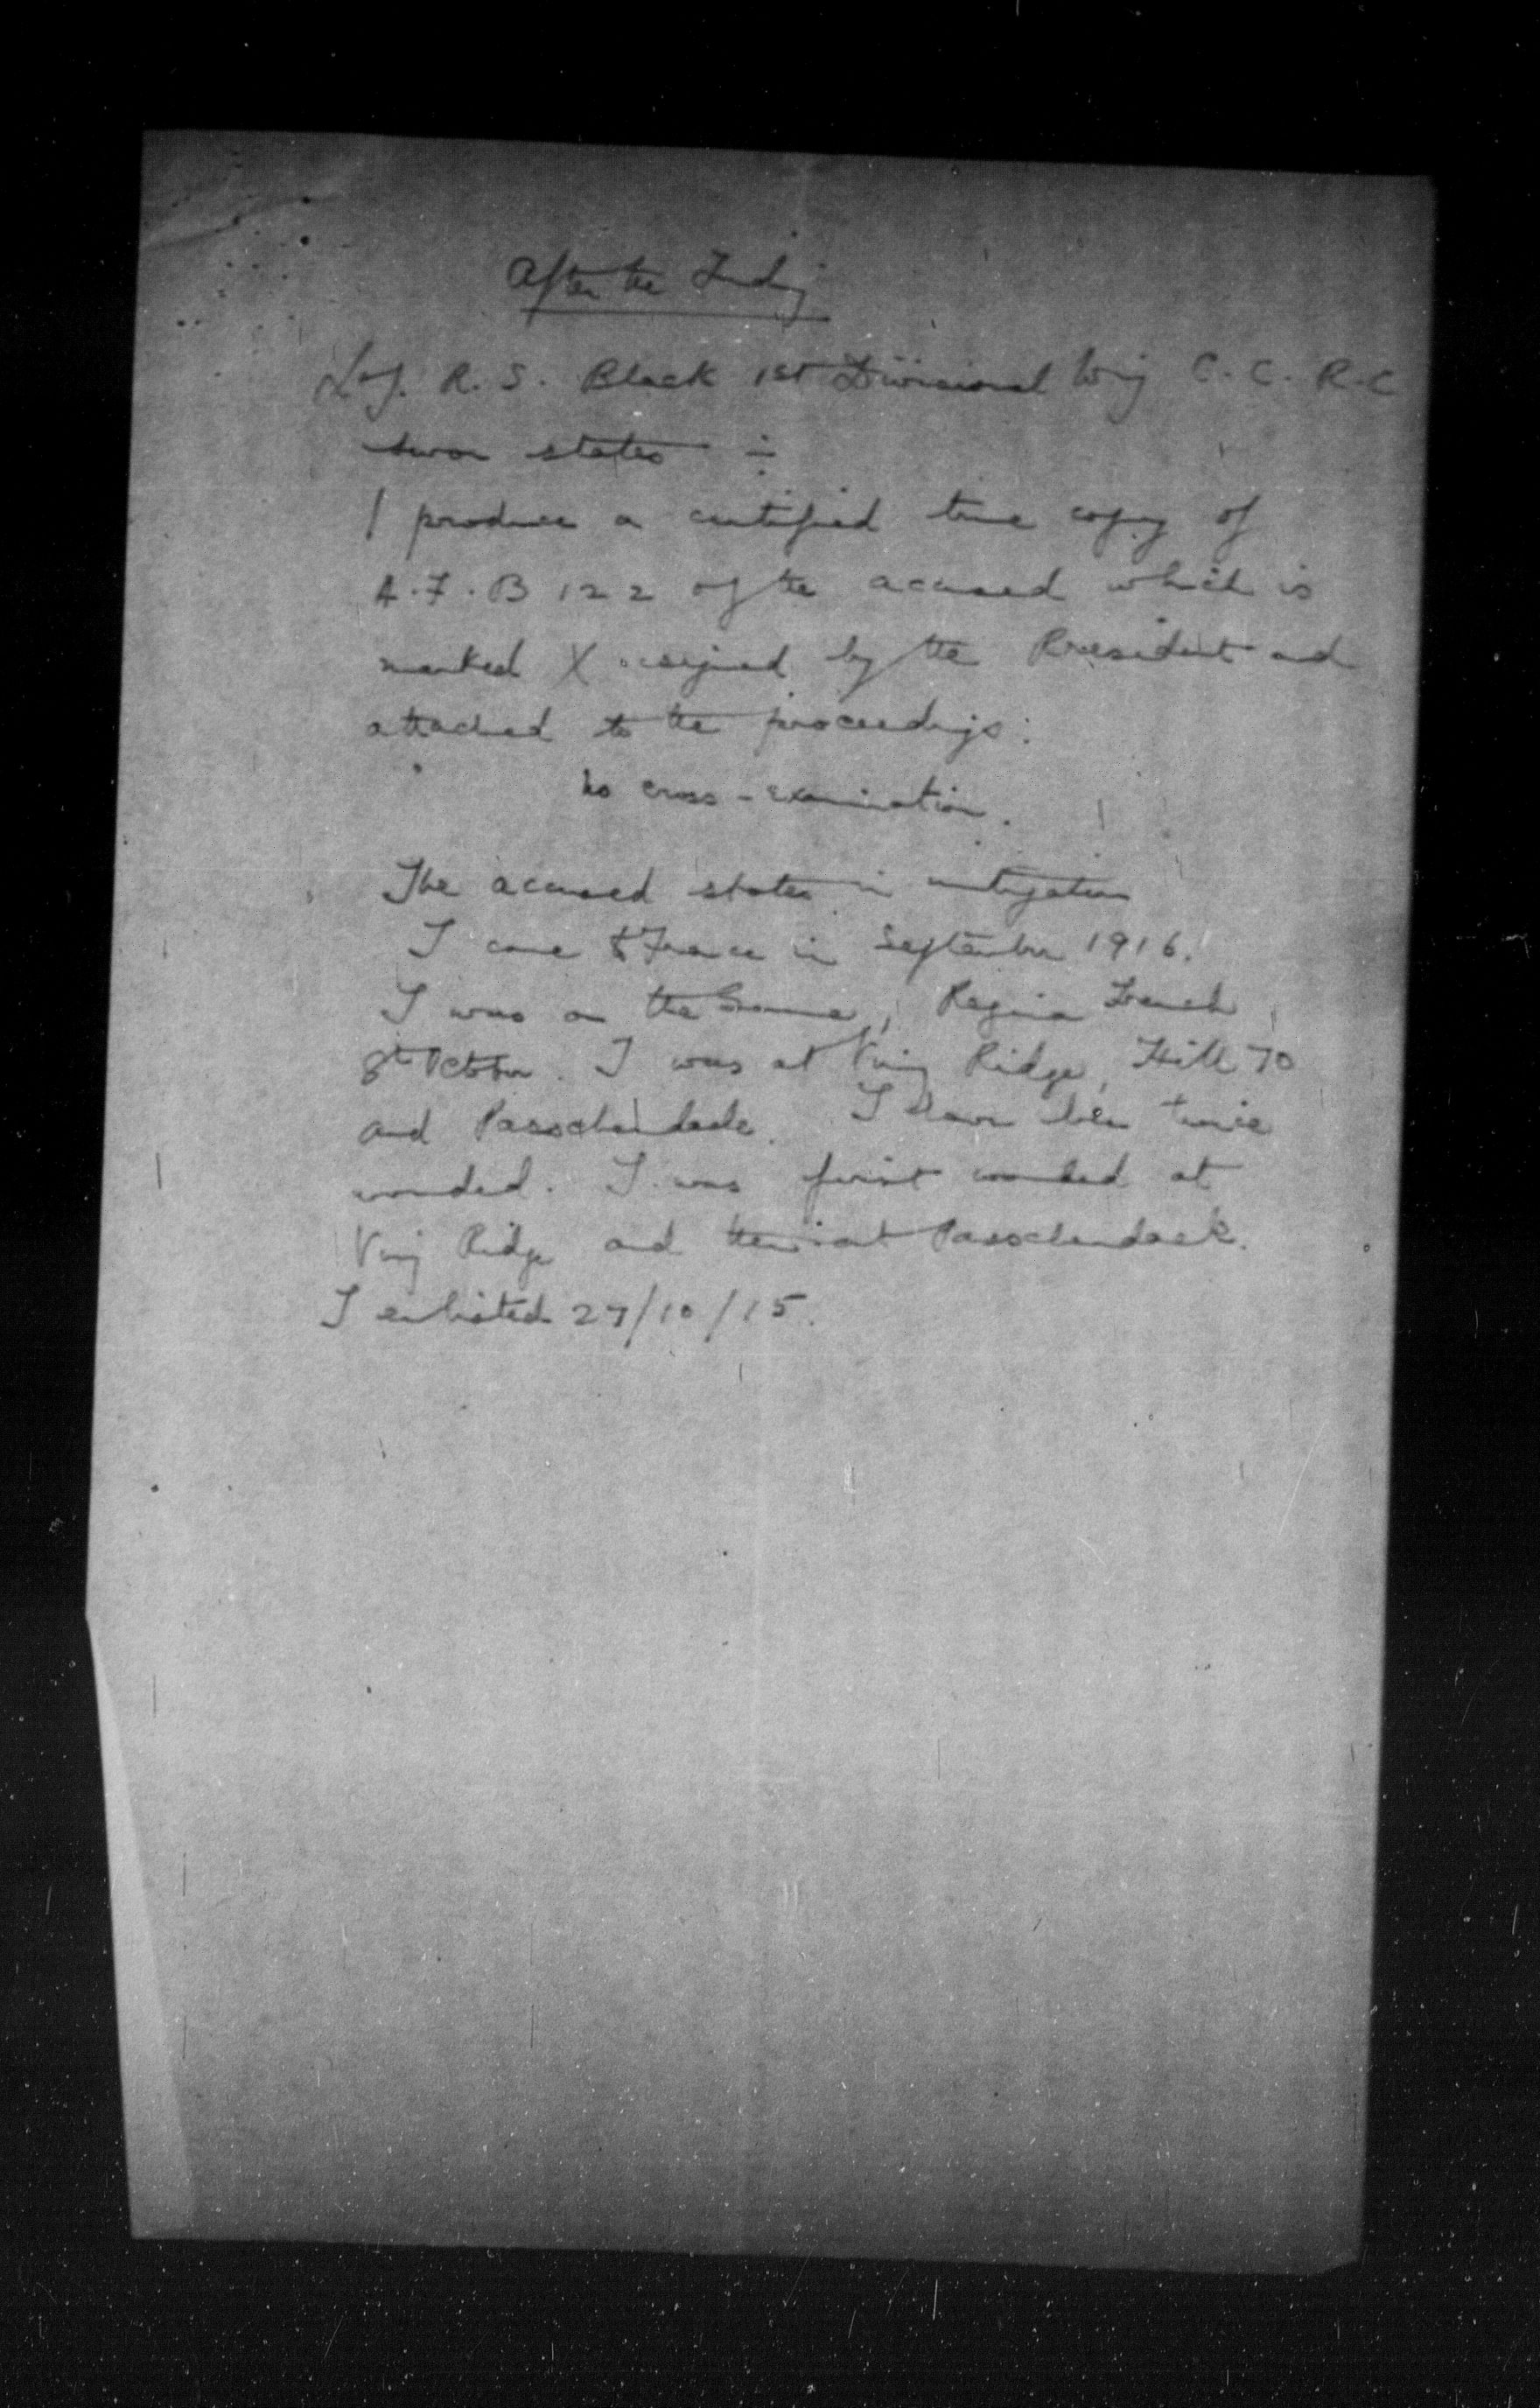 After the Finding
R. S. Black 1st Divisional Wing C. C. R. C
sworn states :-
I produce a certified true copy of
A. F. B 122 of the accused which is
marked X signed by the President and
attached to the proceedings.
No cross-examination.
The accused states in mitigation
I came to France in September 1916.
I was on the Somme, Regina Trench,
8th October. I was at Vimy Ridge, Hill 70
and Passchendaele. I have been twice
wounded. I was first wounded at
Vimy Ridge and then at Passchendaele.
I enlisted 27/10/15.